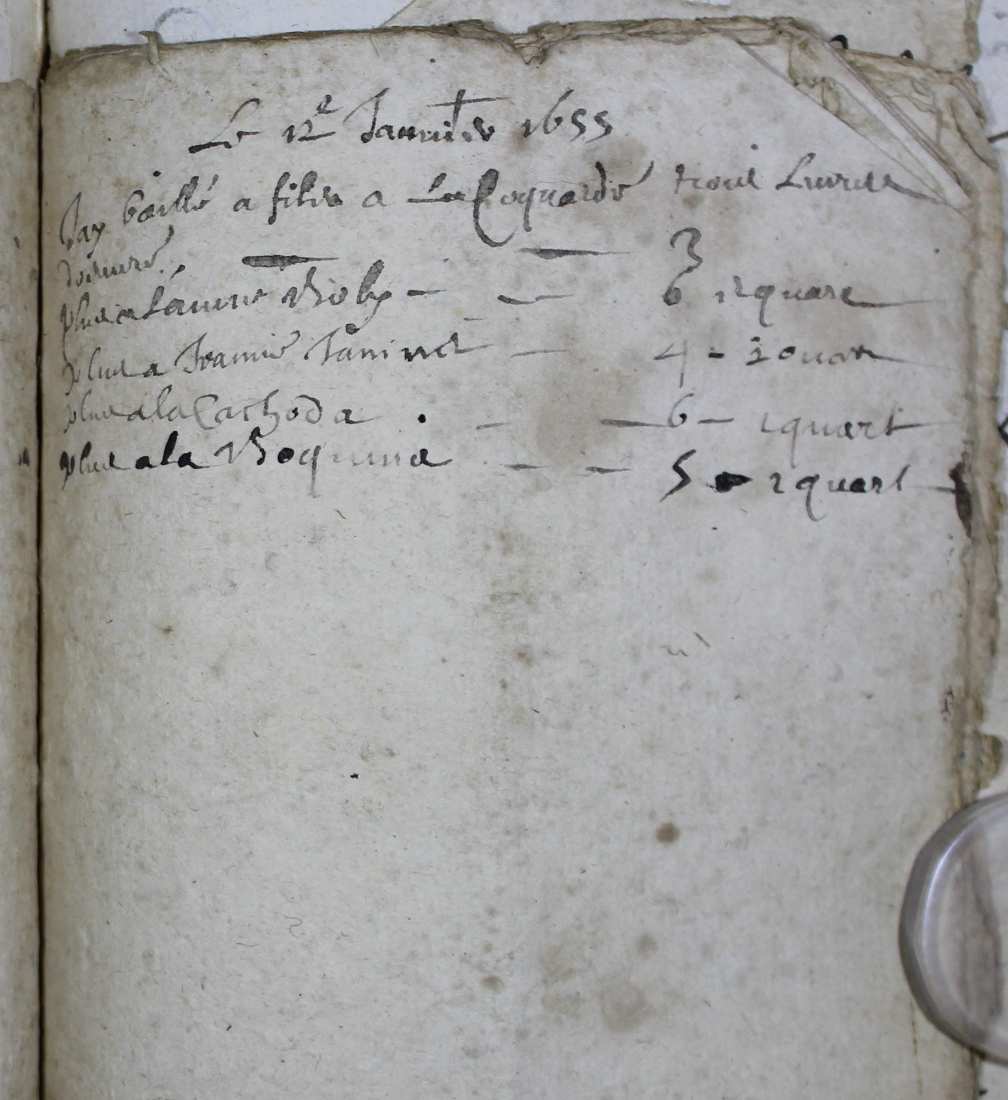 Le 12e Januier 1655
Jay baillé a filer a La Coquarde trois Liures
dœuure 3
plus a Lanne Violy 6 1 quart
plus a Jeanne Janinet 4 - 1 quar
plus a la Cachoda 6 - 1 quart
plus a la Boquina 5 1 quart